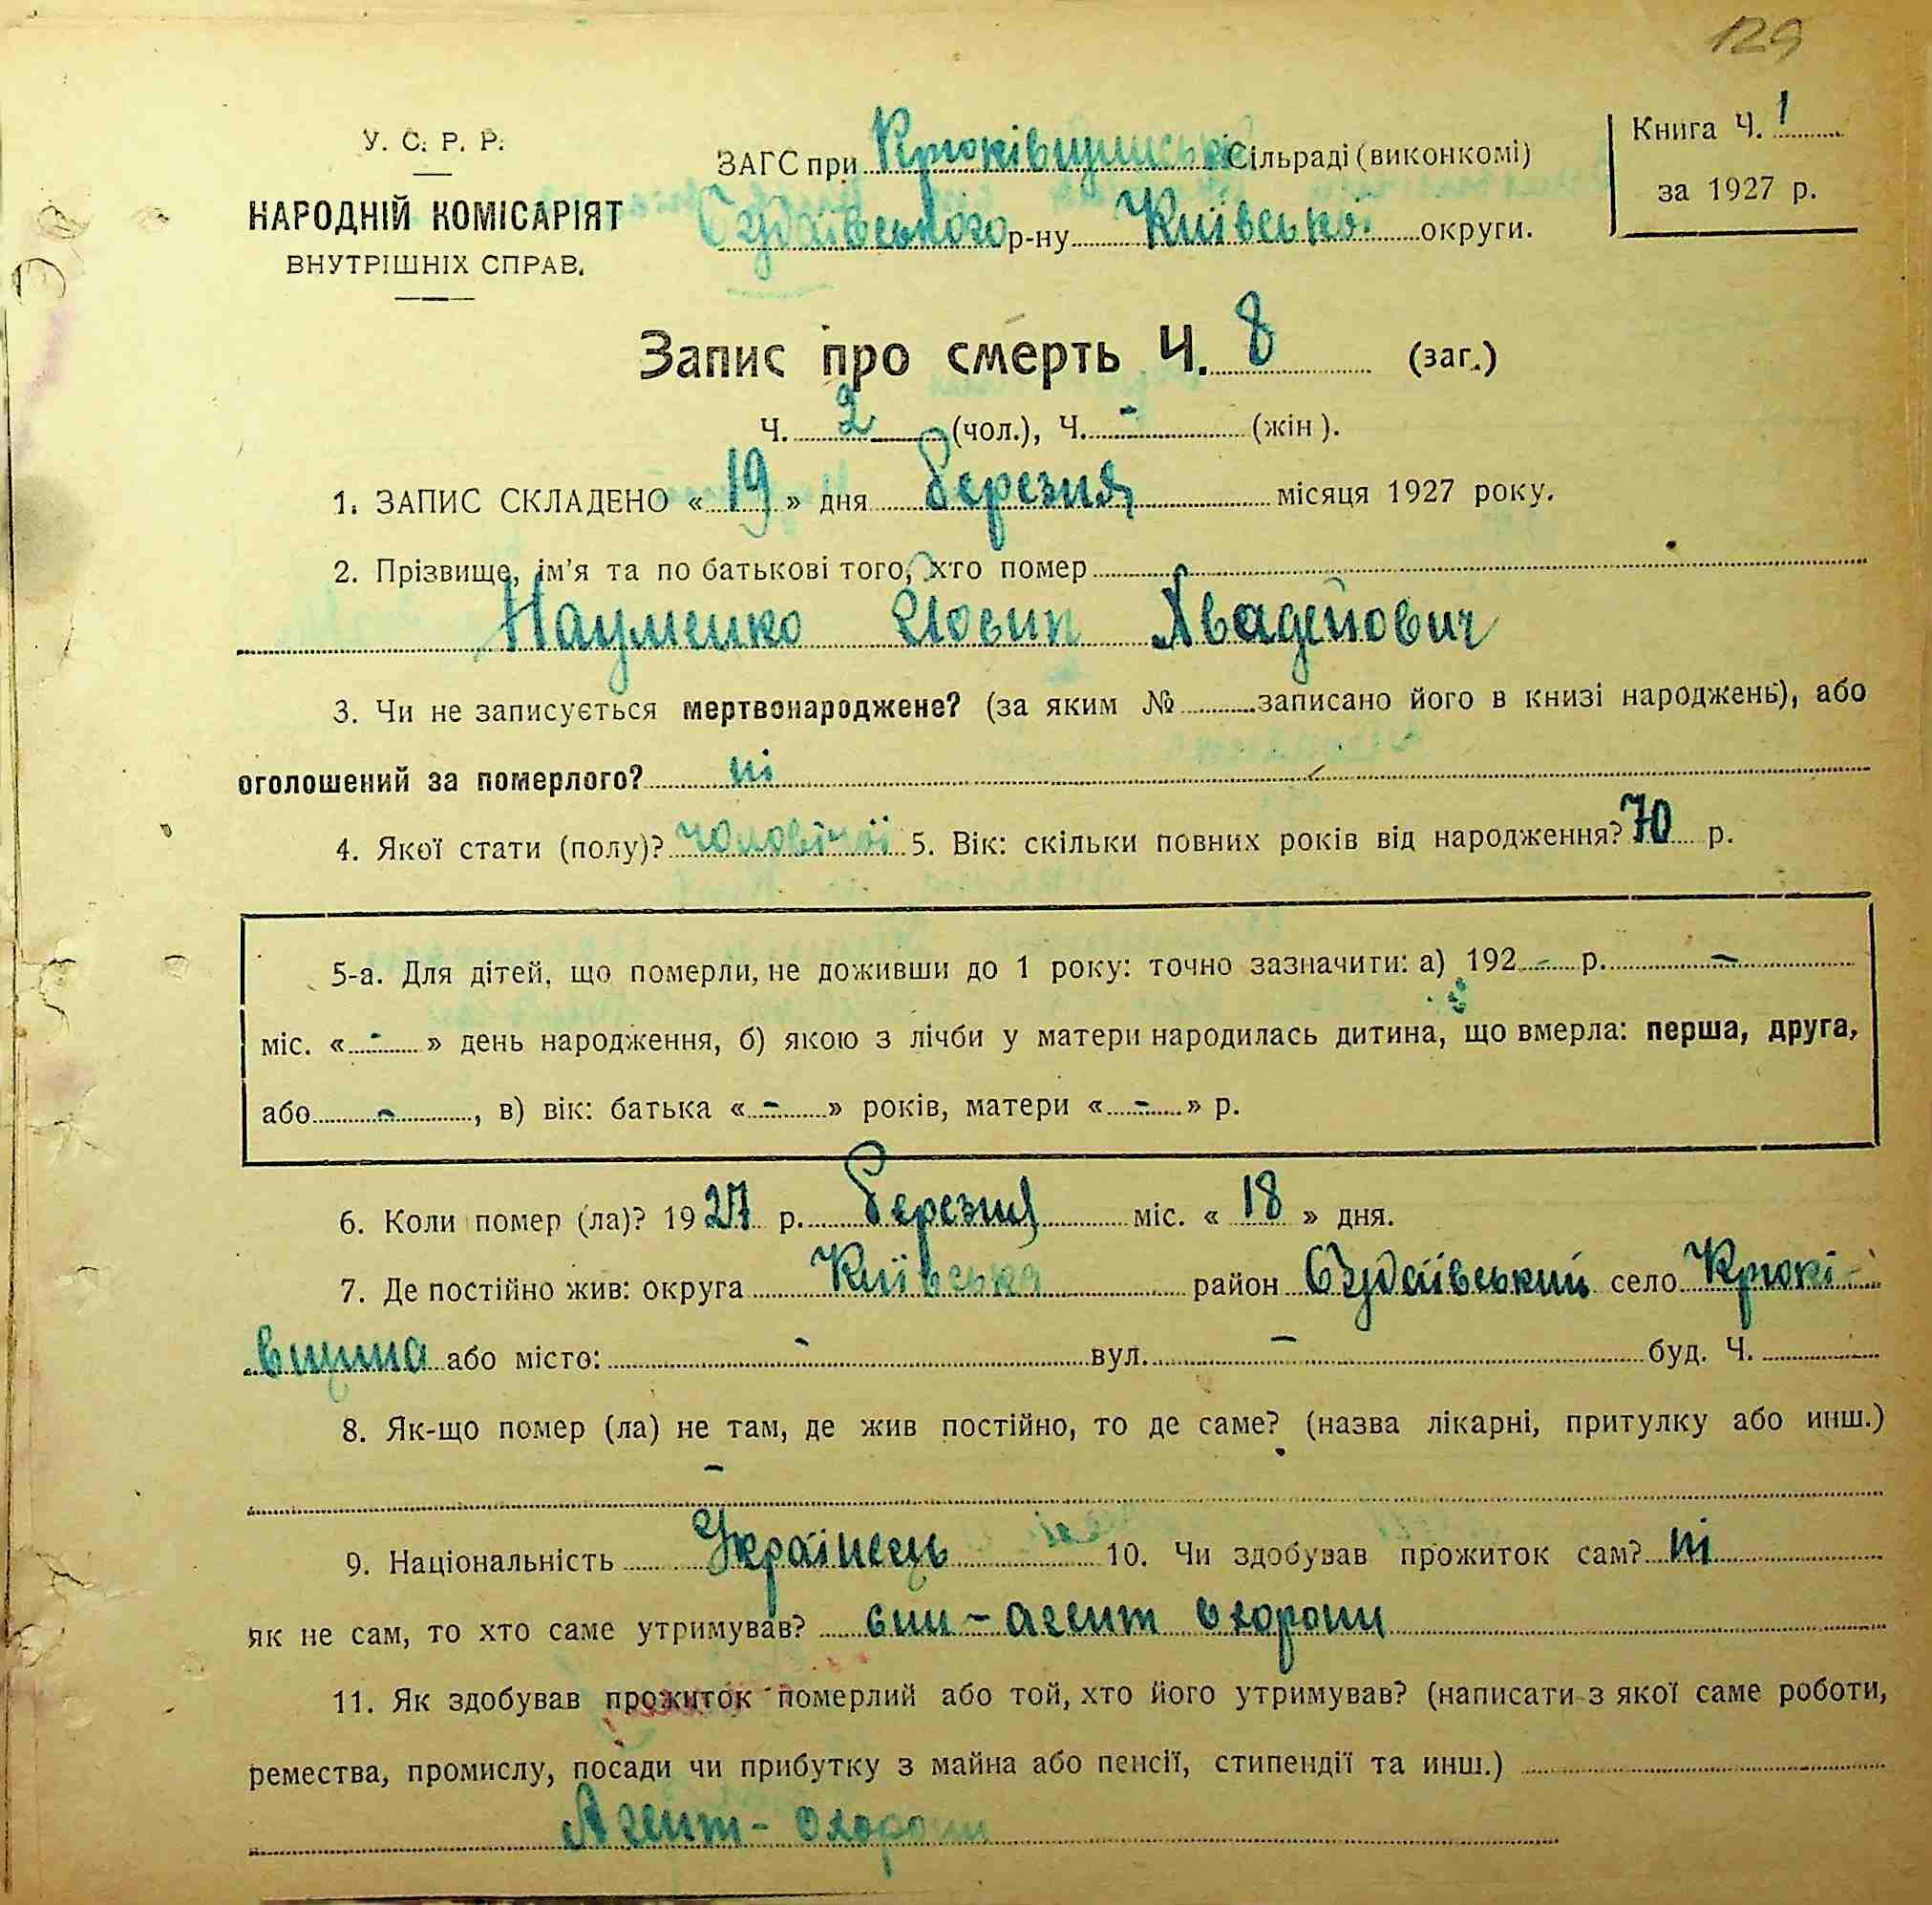 129
У. С. Р. Р.
НАРОДНІЙ КОМІСАРІЯТ
ВНУТРІШНІХ СПРАВ.
ЗАГС при Крюківщинській Сільраді (виконкомі)
Будаївського р-ну Київської округи.
Книга Ч. 1
за 1927 р.
Запис про смерть Ч. 8 (заг.)
Ч. 2 (чол.), Ч. - (жін).
1. ЗАПИС СКЛАДЕНО «19» дня березня місяця 1927 року.
2. Прізвище, ім'я та по батькові того, хто помер
Науменко Йосип Хвадейович
3. Чи не записується мертвонароджене? (за яким № записано його в книзі народжень), або
оголошений за померлого? ні
4. Якої стати (полу)? чоловічої 5. Вік: скільки повних років від народження? 70 р.
5-а. Для дітей, що померли, не доживши до 1 року: точно зазначити: а) 192 - р. -
міс. « - » день народження, б) якою з лічби у матери народилась дитина, що вмерла: перша, друга,
або - , в) вік: батька « - » років, матери « - » р.
6. Коли помер (ла)? 1927 р. березня міс. «18» дня.
7. Де постійно жив: округа Київська район Будаївський село Крюкі-
вщина або місто: - вул. - буд. Ч.
8. Як-що помер (ла) не там, де жив постійно, то де саме? (назва лікарні, притулку або инш.)
-
9. Національність Українець 10. Чи здобував прожиток сам? ні
як не сам, то хто саме утримував? син - агент охорони
11. Як здобував прожиток померлий або той, хто його утримував? (написати з якої саме роботи,
ремества, промислу, посади чи прибутку з майна або пенсії, стипендії та инш.)
Агент - охорони